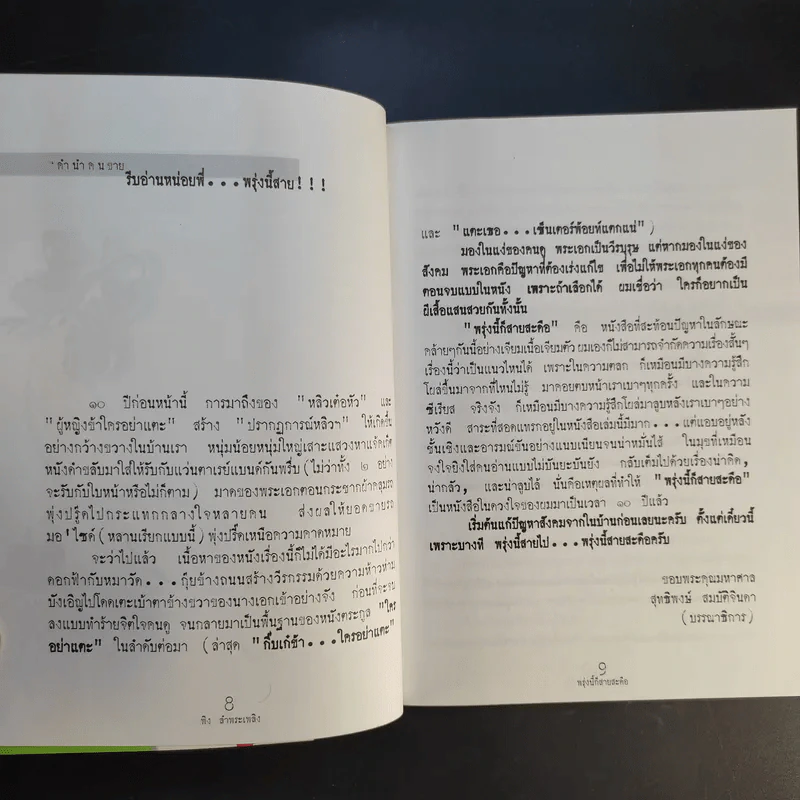 "คำนำคนขาย
รีบอ่านหน่อยพี่...พรุ่งนี้สาย!!!
๑๐ ปีก่อนหน้านี้ การมาถึงของ "หลิวเต๋อหัว" และ
"ผู้หญิงข้าใครอย่าแตะ" สร้าง "ปรากฏการณ์หลิวฯ" ให้เกิดขึ้น
อย่างกว้างขวางในบ้านเรา หนุ่มน้อยหนุ่มใหญ่เสาะแสวงหาแจ็คเก็ต
หนังดำขลับมาใส่ให้รับกับแว่นตาเรย์แบนด์กันพรึ่บ (ไม่ว่าทั้ง ๒ อย่าง
จะรับกับใบหน้าหรือไม่ก็ตาม) มาดของพระเอกตอนกระชากผ้าคลุมรถ
พุ่งปรู๊ดไปกระแทกกลางใจหลายคน ส่งผลให้ยอดขายรถ
มอ'ไซค์ (หลานเรียกแบบนี้) พุ่งปรี๊ดเหนือความคาดหมาย
จะว่าไปแล้ว เนื้อหาของหนังเรื่องนี้ก็ไม่ได้มีอะไรมากไปกว่า
ดอกฟ้ากับหมาวัด...กุ๊ยข้างถนนสร้างวีรกรรมด้วยความห้าวหาญ
บังเอิญไปโดดเตะเบ้าตาข้างขวาของนางเอกเข้าอย่างจัง ก่อนที่จะจบ
ลงแบบทำร้ายจิตใจคนดู จนกลายมาเป็นพื้นฐานของหนังตระกูล "ใคร
อย่าแตะ" ในลำดับต่อมา (ล่าสุด "กิ๊บเก๋ข้า...ใครอย่าแตะ"
8
พิง ลำพระเพลิง
และ "แตะเธอ...เซ็นเตอร์พ้อยท์แตกแน่")
มองในแง่ของคนดู พระเอกเป็นวีรบุรุษ แต่หากมองในแง่ของ
สังคม พระเอกคือปัญหาที่ต้องเร่งแก้ไข เพื่อไม่ให้พระเอกทุกคนต้องมี
ตอนจบแบบในหนัง เพราะถ้าเลือกได้ ผมเชื่อว่า ใครก็อยากเป็น
ผีเสื้อแสนสวยกันทั้งนั้น
"พรุ่งนี้ก็สายสะดือ" คือ หนังสือที่สะท้อนปัญหาในลักษณะ
คล้ายๆกันนี้อย่างเจียมเนื้อเจียมตัว ผมเองก็ไม่สามารถจำกัดความเรื่องสั้นๆ
เรื่องนี้ว่าเป็นแนวไหนได้ เพราะในความตลก ก็เหมือนมีบางความรู้สึก
โผล่ขึ้นมาจากที่ไหนไม่รู้ มาคอยตบหน้าเราเบาๆทุกครั้ง และในความ
ซีเรียส จริงจัง ก็เหมือนมีบางความรู้สึกโผล่มาลูบหลังเราเบาๆอย่าง
หวังดี สาระที่สอดแทรกอยู่ในหนังสือเล่มนี้มีมาก...แต่แอบอยู่หลัง
ชั้นเชิงและอารมณ์ขันอย่างแนบเนียนจนน่าหมั่นไส้ ในมุขที่เหมือน
จงใจยิงใส่คนอ่านแบบไม่บันยะบันยัง กลับเต็มไปด้วยเรื่องน่าคิด,
น่ากลัว, และน่าลูบไล้ นั่นคือเหตุผลที่ทำให้ "พรุ่งนี้ก็สายสะดือ"
เป็นหนังสือในดวงใจของผมมาเป็นเวลา ๑๐ ปีแล้ว
เริ่มต้นแก้ปัญหาสังคมจากในบ้านก่อนเลยนะครับ ตั้งแต่เดี๋ยวนี้
เพราะบางที พรุ่งนี้สายไป...พรุ่งนี้สายสะดือครับ
ขอบพระคุณมหาศาล
สุทธิพงษ์ สมบัติจินดา
(บรรณาธิการ)
9
พรุ่งนี้ก็สายสะดือ